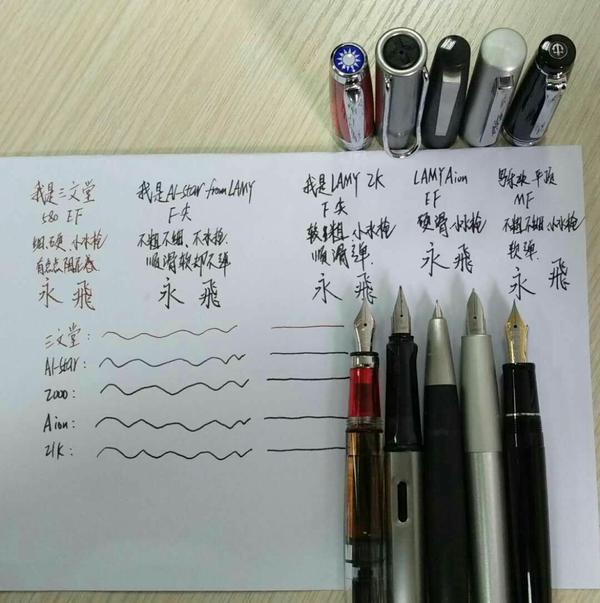 我是三文堂
580 EF
细、硬、小水枪
有点点阻尼感
永 飛
我是Al-star from LAMY
F尖
不粗不细、不水枪.
顺滑软却不弹
永 飛
我是LAMY 2K
F尖
小水枪
顺滑弹.
永 飛
LAMY Aion
EF
硬滑小水枪
永 飛
MF
不粗不细、小水枪
软弹.
永 飛
三文堂:
Al-star:
2000:
Aion:
21K: